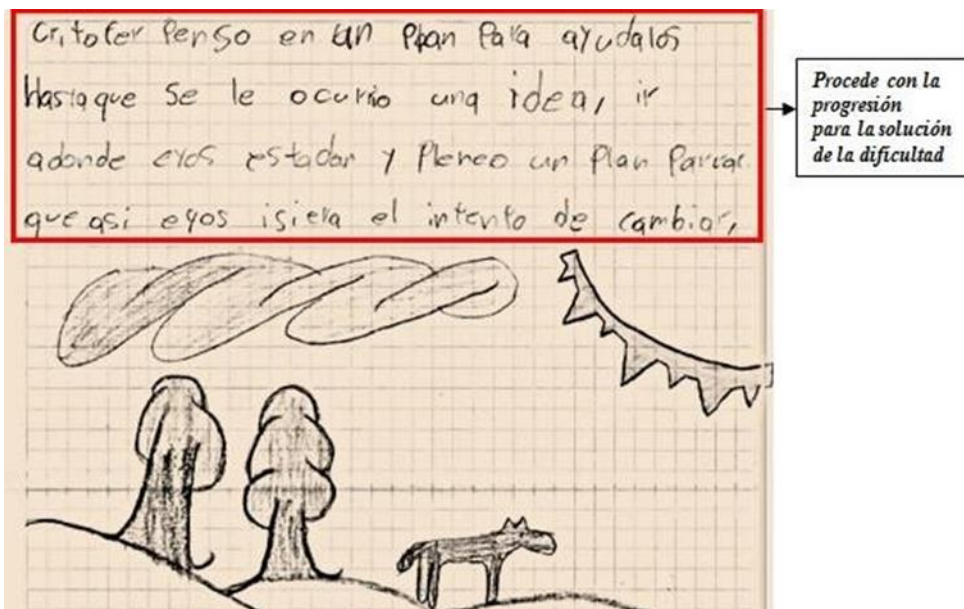 Critofer Penso en un Plan Para ayudalos
Hasta que se le ocurrio una idea, ir
adonde eyos estadar y Pleneo un Plan Parrac
que asi eyos isiera el intento de cambiar,
Procede con la
progresión
para la solución
de la dificultad